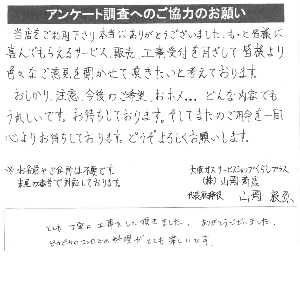 アンケート調査へのご協力のお願い
当店をご利用下さり本当にありがとうございました。もっと皆様に
喜んでもらえるサービス、販売、工事受付を目ざして皆様より
色々なご意見を聞かせて頂きたいと考えております。
おしかり、注意、今後のご希望、おホメ...どんな内容でも
うれしいです。お待ちしております。そしてまたのご用命を一同
心よりお待ちしております。どうぞよろしくお願いします。
※お名前やご住所は不要です。
大阪ガスサービスショップ
(株)山岡商店
代表取締役 山岡
とても丁寧に工事をして頂きました。ありがとうございました。
ピカピカのコンロでの料理がとても楽しいです。